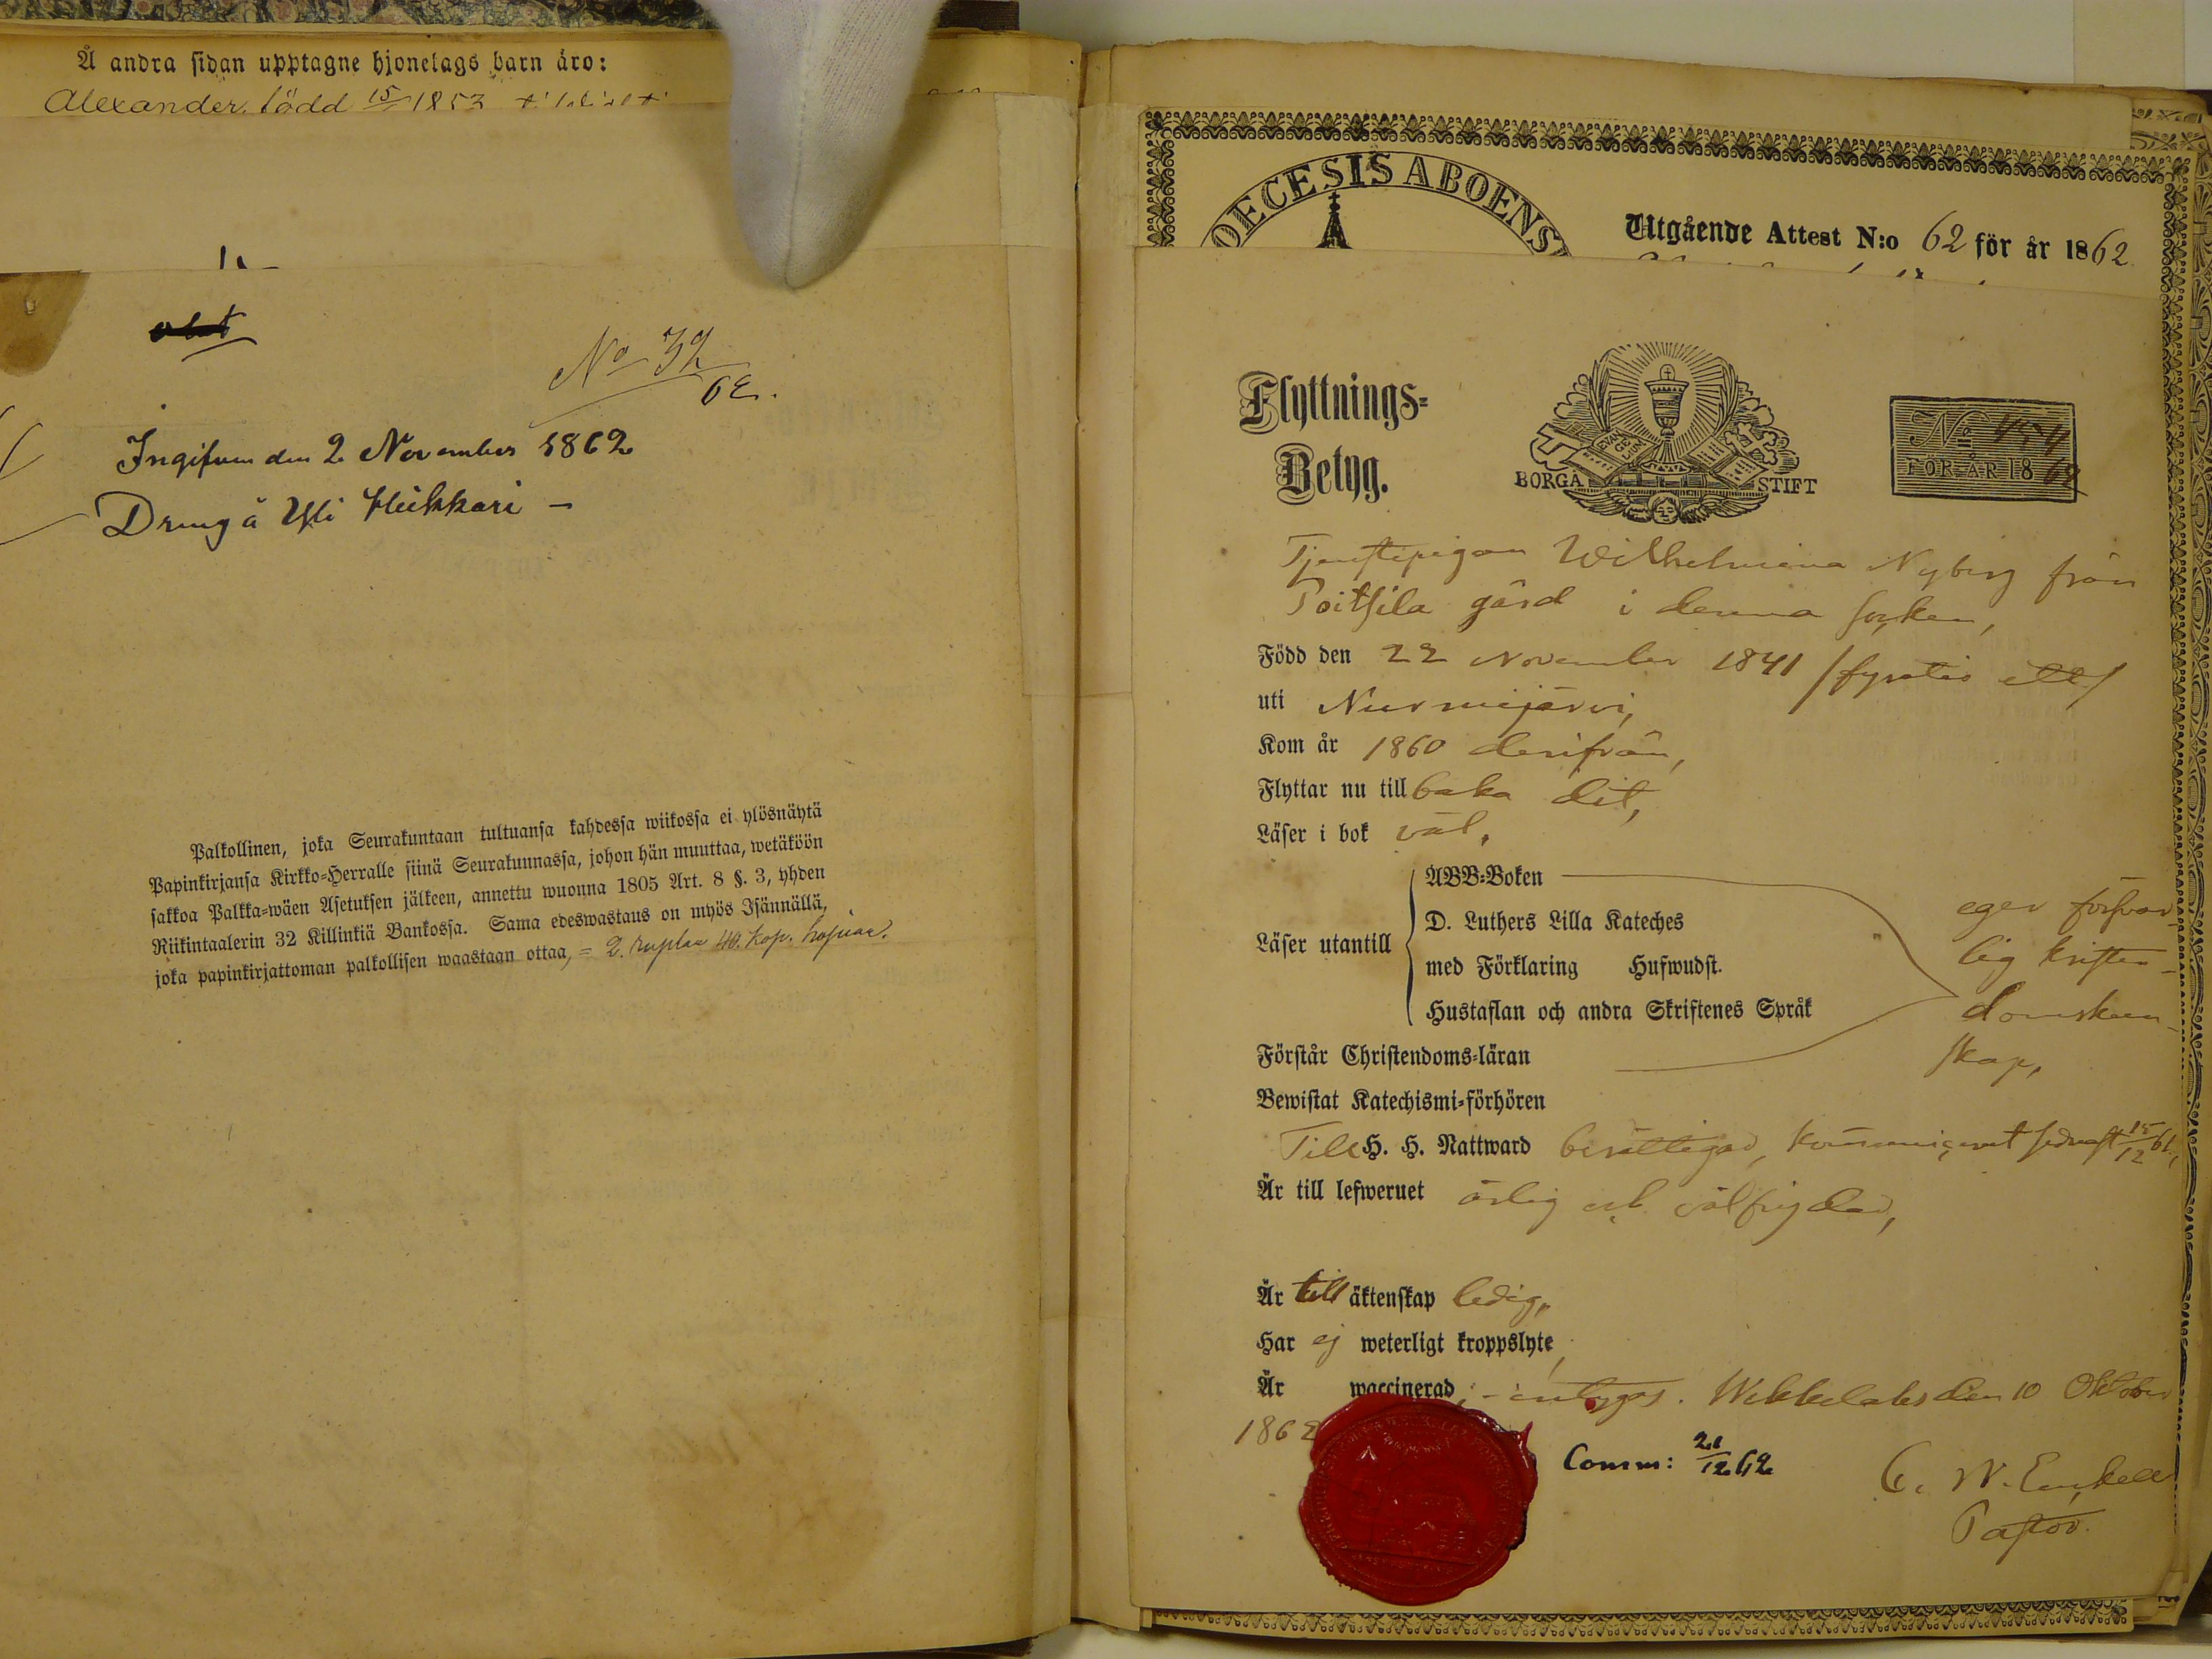 Å andra sidan upptagne hjonelags barn äro:
Alexander, född 15/ 1853
N:o 32
62.
Ingifven den 2 November 1862
Dräng å Yli Heikkari –
Palkollinen, joka Seurakuntaan tultuansa kahdessa wiikossa ei ylösnäytä
Papinkirjansa Kirkko-Herralle siinä Seurakunnassa, johon hän muuttaa, wetäköön
sakkoa Palkka-wäen Asetuksen jälkeen, annettu wuonna 1805 Art. 8 §. 3, yhden
Riikintaalerin 32 Killinkiä Bankossa. Sama edeswastaus on myös Isännällä,
joka papinkirjattoman palkollisen waastaan ottaa, = 2. ruplaa 40. kop. hopiaa.
DIOECESIS ABOENS
Utgående Attest N:o 62 för år 1862
Flyttnings-
Betyg.
EVAN GE LIUM
BORGÅ STIFT
N:o 454
FÖR ÅR 1862
Tjenstepigan Wilhelmina Nyberg från
Toitsila gård i denna socken,
Född den 22 November 1841 /fyratio ett/
uti Nurmijärvi,
Kom år 1860 derifrån,
Flyttar nu till baka dit,
Läser i bok väl,
Läser utantill
ABB-Boken
D. Luthers Lilla Kateches
med Förklaring Hufwudst.
Hustaflan och andra Skriftenes Språk
eger försvar-
lig kristen-
domskun-
skap,
Förstår Christendoms-läran
Bewistat Katechismi-förhören
Till H. H. Nattward berättigad, kommunicerat sednast 15/12 61,
Är till lefwernet ärlig och välfrejdad,
Är till äktenskap ledig,
Har ej weterligt kroppslyte,
Är waccinerad; – intygas. Wihkelaks den 10 Oktober
1862
Comm: 21/12 62
C. W. Enkell
Pastor.